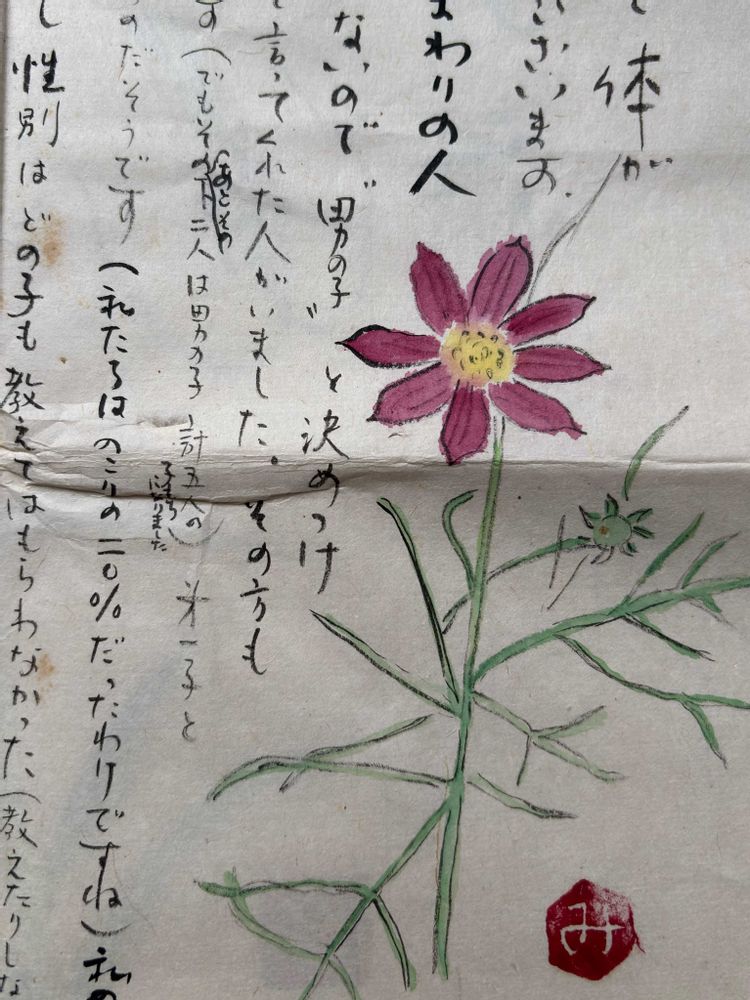 体が
ございます。
まわりの人
ないので〝男の子〟と決めつけ
て言ってくれた人がいました。その方も
す(でもその下二人は男の子 計五人の) 第一子と
あとその
子持ちになりました
のだそうです (私たちはのこりの二〇%だったわけですね) 私の
し性別はどの子も教えてはもらわなかった(教えたりしな
み